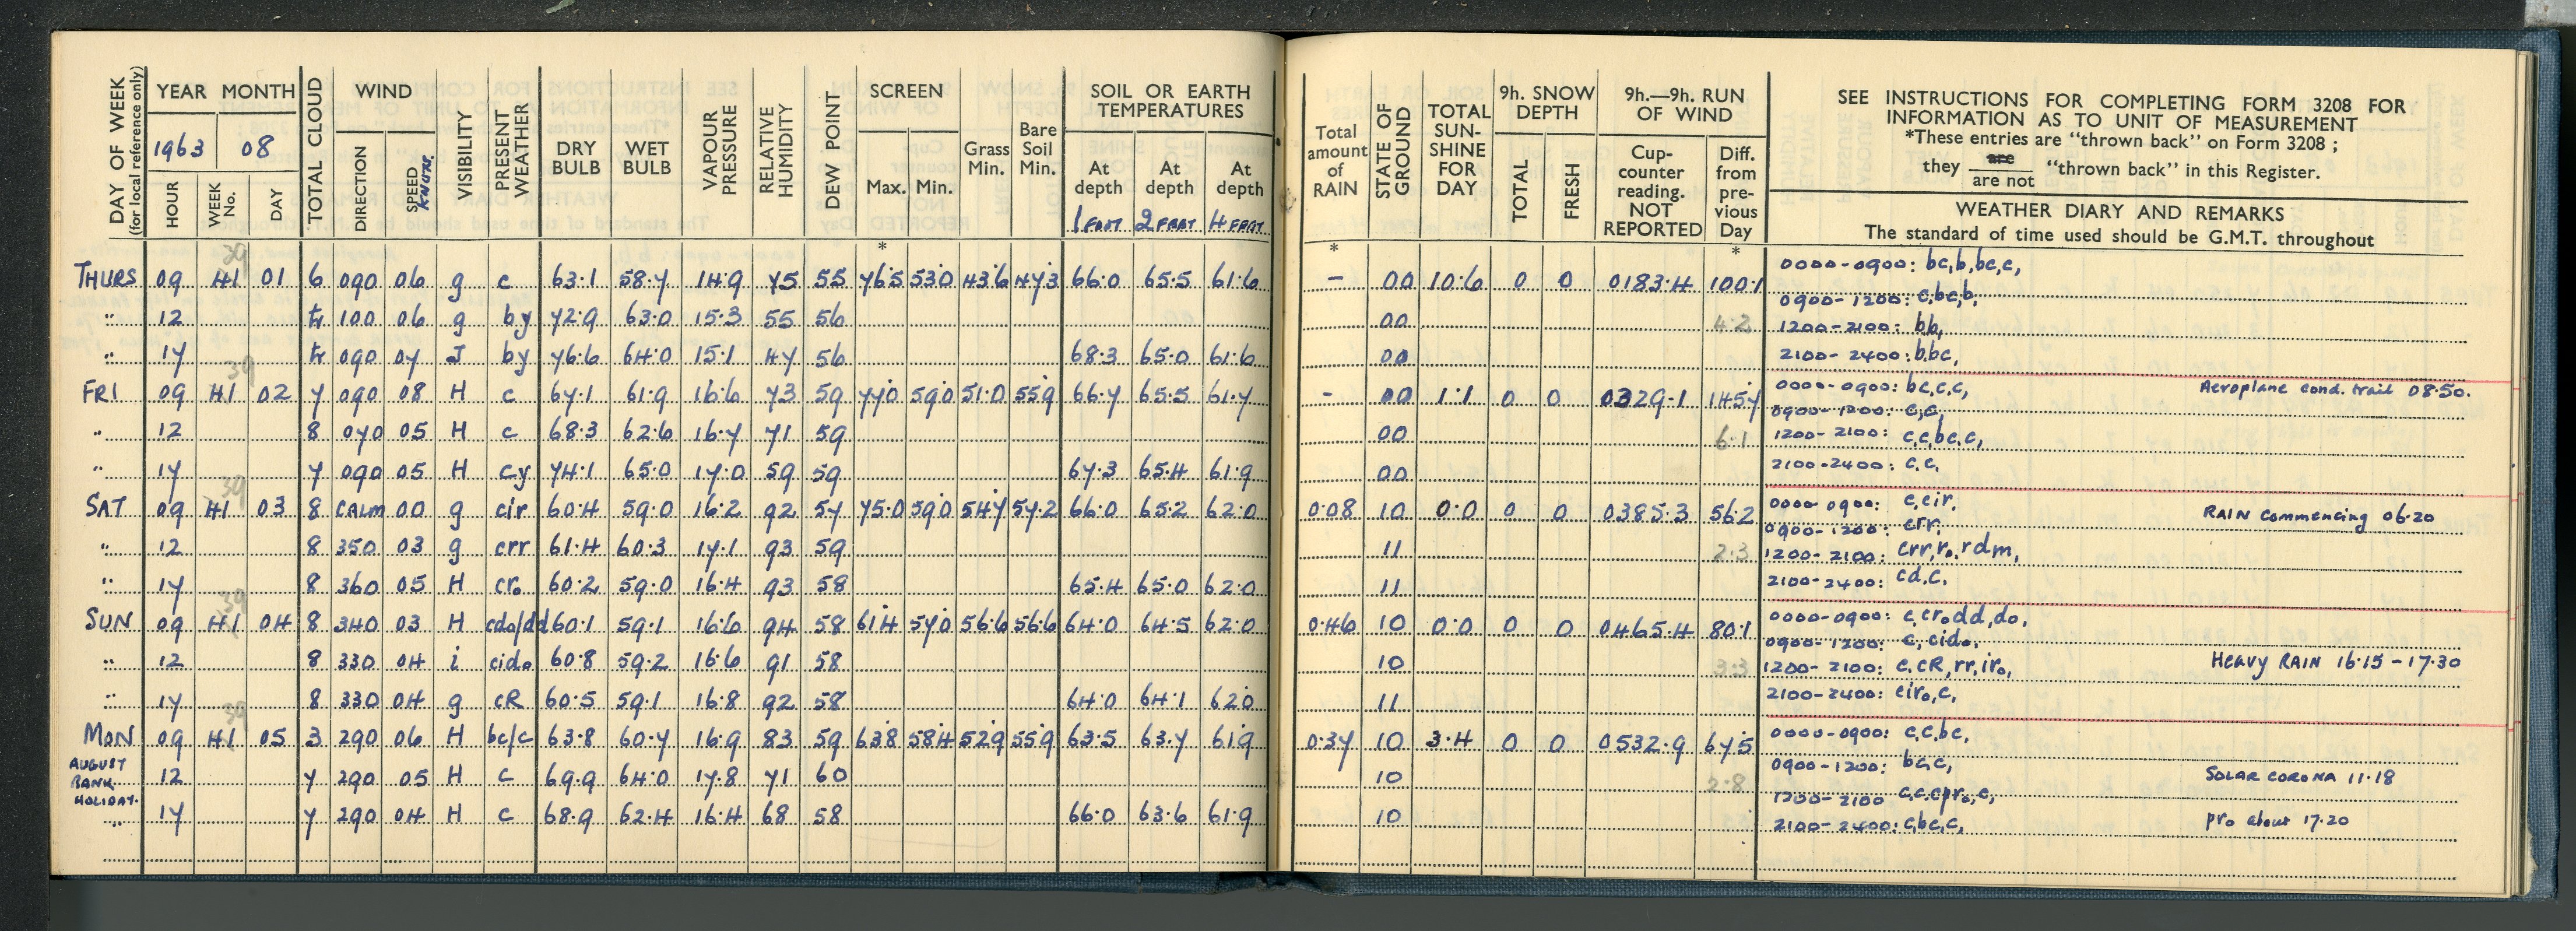 DAY OF WEEK (for local reference only)
YEAR MONTH
1963 08
HOUR WEEK No. DAY
TOTAL CLOUD
WIND
DIRECTION SPEED KNOTS.
VISIBILITY
PRESENT WEATHER
DRY BULB
WET BULB
VAPOUR PRESSURE
RELATIVE HUMIDITY
DEW POINT
SCREEN
Max. Min.
Grass Min.
Bare Soil Min.
SOIL OR EARTH TEMPERATURES
At depth At depth At depth
1 FOOT 2 FEET 4 FEET
Total amount of RAIN
STATE OF GROUND
TOTAL SUN-SHINE FOR DAY
9h. SNOW DEPTH
TOTAL FRESH
9h.—9h. RUN OF WIND
Cup-counter reading. NOT REPORTED
Diff. from pre-vious Day
SEE INSTRUCTIONS FOR COMPLETING FORM 3208 FOR
INFORMATION AS TO UNIT OF MEASUREMENT
*These entries are "thrown back" on Form 3208 ;
they are / are not "thrown back" in this Register.
WEATHER DIARY AND REMARKS
The standard of time used should be G.M.T. throughout
* * *
39
THURS 09 41 01 6 090 06 g c 63.1 58.7 14.9 75 55 76.5 53.0 43.6 47.3 66.0 65.5 61.6 – 00 10.6 0 0 0183.4 100.1 0000-0900: bc,b,bc,c,
0900-1200: c,bc,b,
" 12 tr 100 06 g by 72.9 63.0 15.3 55 56 00 4.2 1200-2100: b,b,
" 17 tr 090 07 I by 76.6 64.0 15.1 47 56 68.3 65.0 61.6 00 2100-2400: b,bc,
39
FRI 09 41 02 7 090 08 H c 67.1 61.9 16.6 73 59 77.0 59.0 51.0 55.9 66.7 65.5 61.7 - 00 1.1 0 0 0329.1 145.7 0000-0900: bc,c,c, Aeroplane cond. trail 08.50.
0900-1200: c,c,
" 12 8 070 05 H c 68.3 62.6 16.7 71 59 00 6.1 1200-2100: c,c,bc,c,
" 17 7 090 05 H cy 74.1 65.0 17.0 59 59 67.3 65.4 61.9 00 2100-2400: c,c,
39
SAT 09 41 03 8 CALM 00 g cir 60.4 59.0 16.2 92 57 75.0 59.0 54.7 57.2 66.0 65.2 62.0 0.08 10 0.0 0 0 0385.3 56.2 0000-0900: c,cir, RAIN commencing 06.20
0900-1200: crr,
" 12 8 350 03 g crr 61.4 60.3 17.1 93 59 11 2.3 1200-2100: crr,ro,rdm,
" 17 8 360 05 H cro 60.2 59.0 16.4 93 58 65.4 65.0 62.0 11 2100-2400: cd,c,
39
SUN 09 41 04 8 340 03 H cdo/dd 60.1 59.1 16.6 94 58 61.4 57.0 56.6 56.6 64.0 64.5 62.0 0.46 10 0.0 0 0 0465.4 80.1 0000-0900: c,crodd,do,
0900-1200: c,cido,
" 12 8 330 04 i cido 60.8 59.2 16.6 91 58 10 3.3 1200-2100: c,cR,rr,iro, HEAVY RAIN 16.15 - 17.30
" 17 8 330 04 g cR 60.5 59.1 16.8 92 58 64.0 64.1 62.0 11 2100-2400: ciro,c,
39
MON 09 41 05 3 290 06 H bc/c 63.8 60.7 16.9 83 59 63.8 58.4 52.9 55.9 63.5 63.7 61.9 0.37 10 3.4 0 0 0532.9 67.5 0000-0900: c,c,bc,
0900-1200: bc,c,
AUGUST BANK HOLIDAY. 12 7 290 05 H c 69.9 64.0 17.8 71 60 10 2.8 SOLAR CORONA 11.18
1200-2100 c,c,cpro,c,
" 17 7 290 04 H c 68.9 62.4 16.4 68 58 66.0 63.6 61.9 10 2100-2400: c,bc,c, pro about 17.20